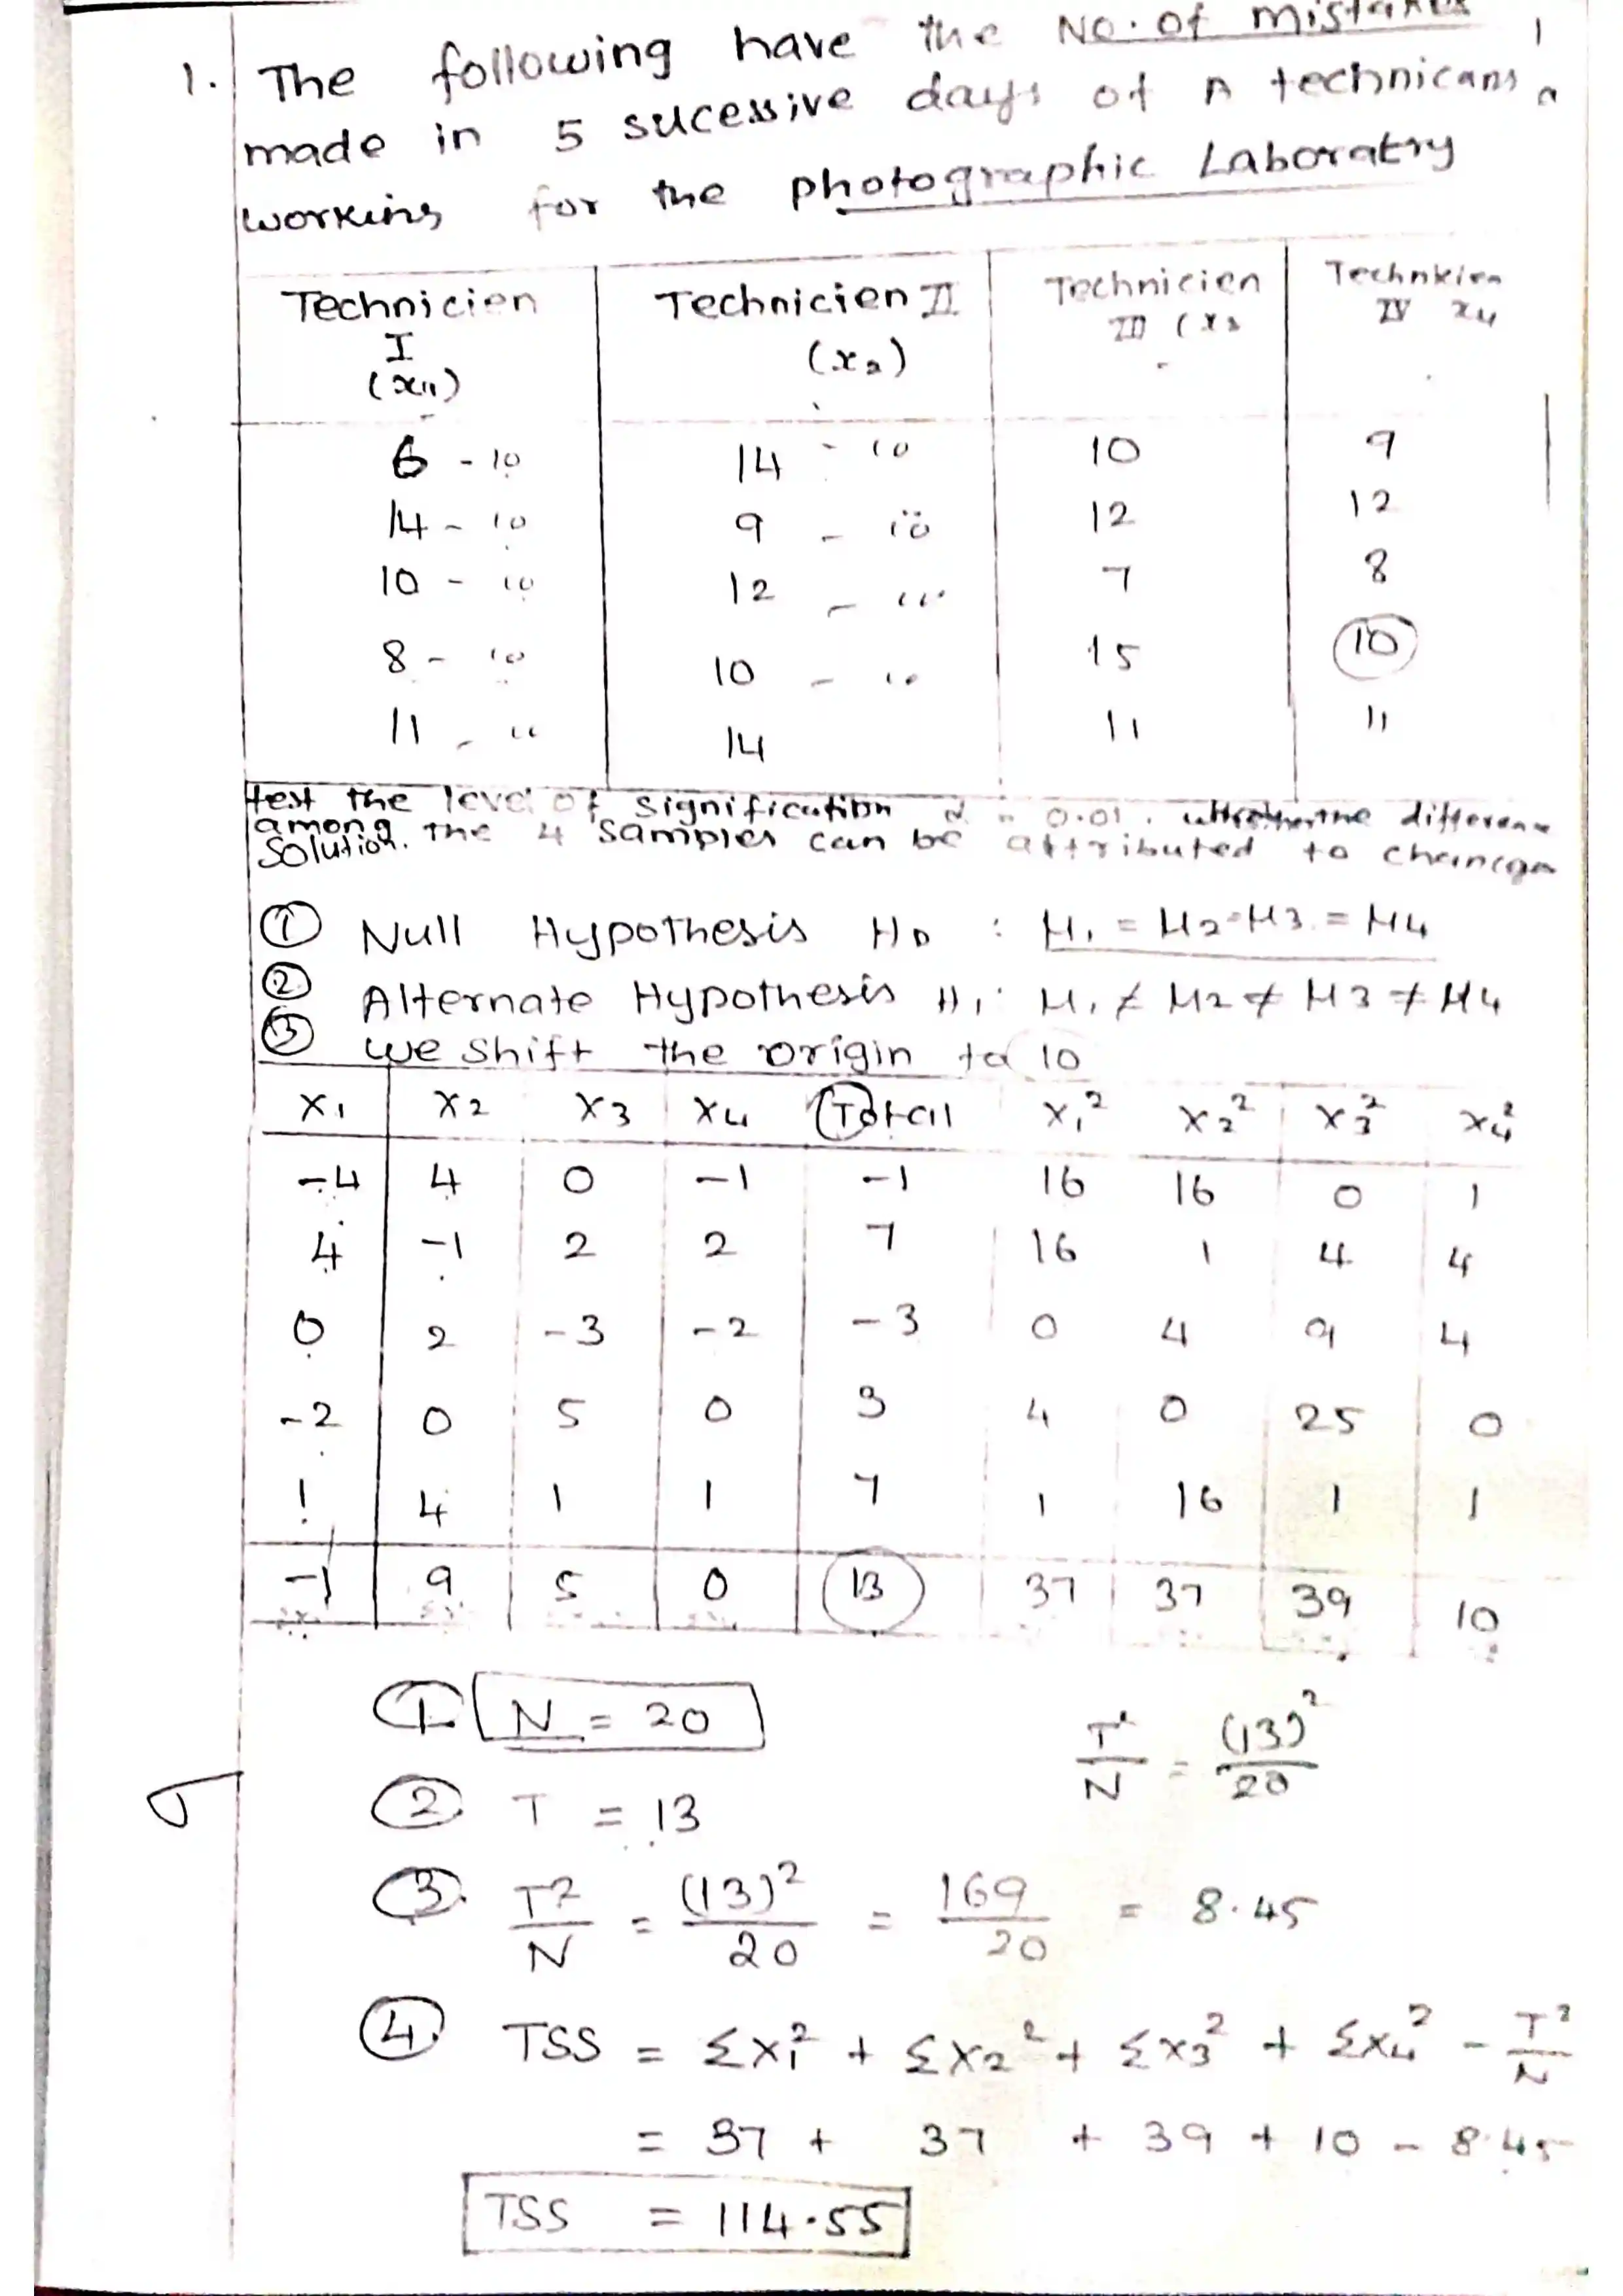 1. The following have the No. of mistakes
made in 5 sucessive days of A technicans
working for the photographic Laboratry
Technicien I (x11) Technicien II (x2) Technicien III (x3 Technicien IV x4
6 - 10 14 - 10 10 9
14 - 10 9 - 10 12 12
10 - 10 12 - 10 7 8
8 - 10 10 - 10 15 10
11 - 10 14 11 11
test the level of signification α = 0.01. whether the difference
among the 4 samples can be attributed to
Solution.
① Null Hypothesis H0 : μ1 = μ2 = μ3 = μ4
② Alternate Hypothesis H1: μ1 ≠ μ2 ≠ μ3 ≠ μ4
③ we shift the origin to 10
x1 x2 x3 x4 Total x1² x2² x3² x4²
-4 4 0 -1 -1 16 16 0 1
4 -1 2 2 7 16 1 4 4
0 2 -3 -2 -3 0 4 9 4
-2 0 5 0 3 4 0 25 0
1 4 1 1 7 1 16 1 1
-1 9 5 0 13 37 37 39 10
① N = 20 T²/N = (13)²/20
② T = 13
③ T²/N = (13)²/20 = 169/20 = 8.45
④ TSS = Σx1² + Σx2² + Σx3² + Σx4² - T²/N
= 37 + 37 + 39 + 10 - 8.45
TSS = 114.55